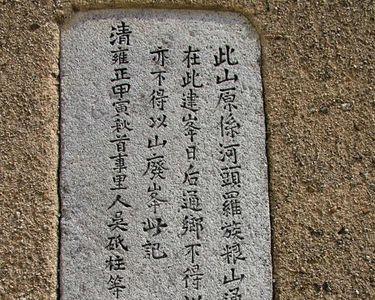 此山原係河頭羅族糧山通
在此建峯日后通鄉不得以
亦不得以山廢峯此記
清雍正甲寅秋首事里人吳砥柱等